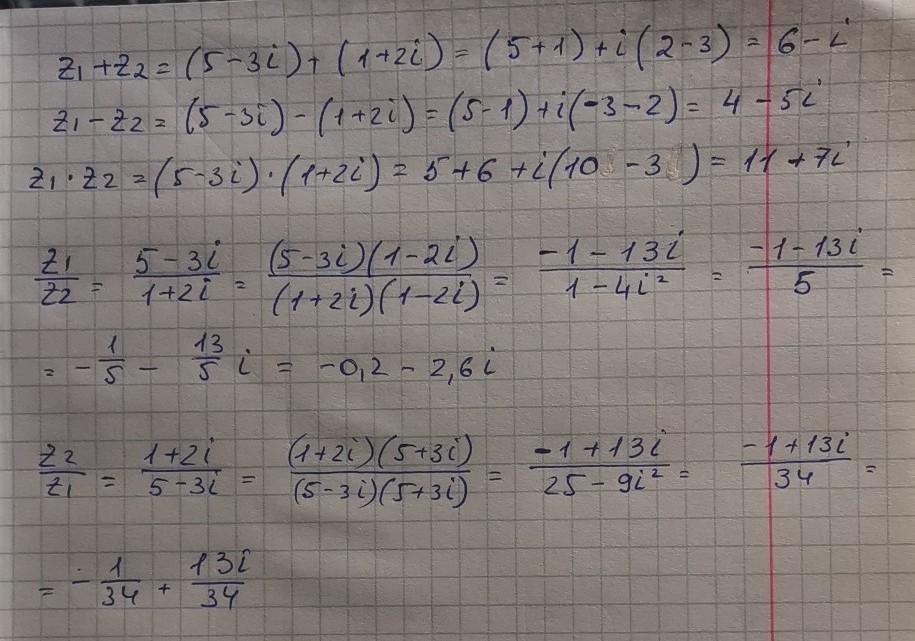 z₁+z₂ = (5-3i)+(1+2i) = (5+1)+i(2-3) = 6-i
z₁-z₂ = (5-3i)-(1+2i) = (5-1)+i(-3-2) = 4-5i
z₁·z₂ = (5-3i)·(1+2i) = 5+6+i(10-3) = 11+7i
z₁/z₂ = (5-3i)/(1+2i) = ((5-3i)(1-2i))/((1+2i)(1-2i)) = (-1-13i)/(1-4i²) = (-1-13i)/5 =
= -1/5 - 13/5 i = -0,2-2,6i
z₂/z₁ = (1+2i)/(5-3i) = ((1+2i)(5+3i))/((5-3i)(5+3i)) = (-1+13i)/(25-9i²) = (-1+13i)/34 =
= -1/34 + 13i/34